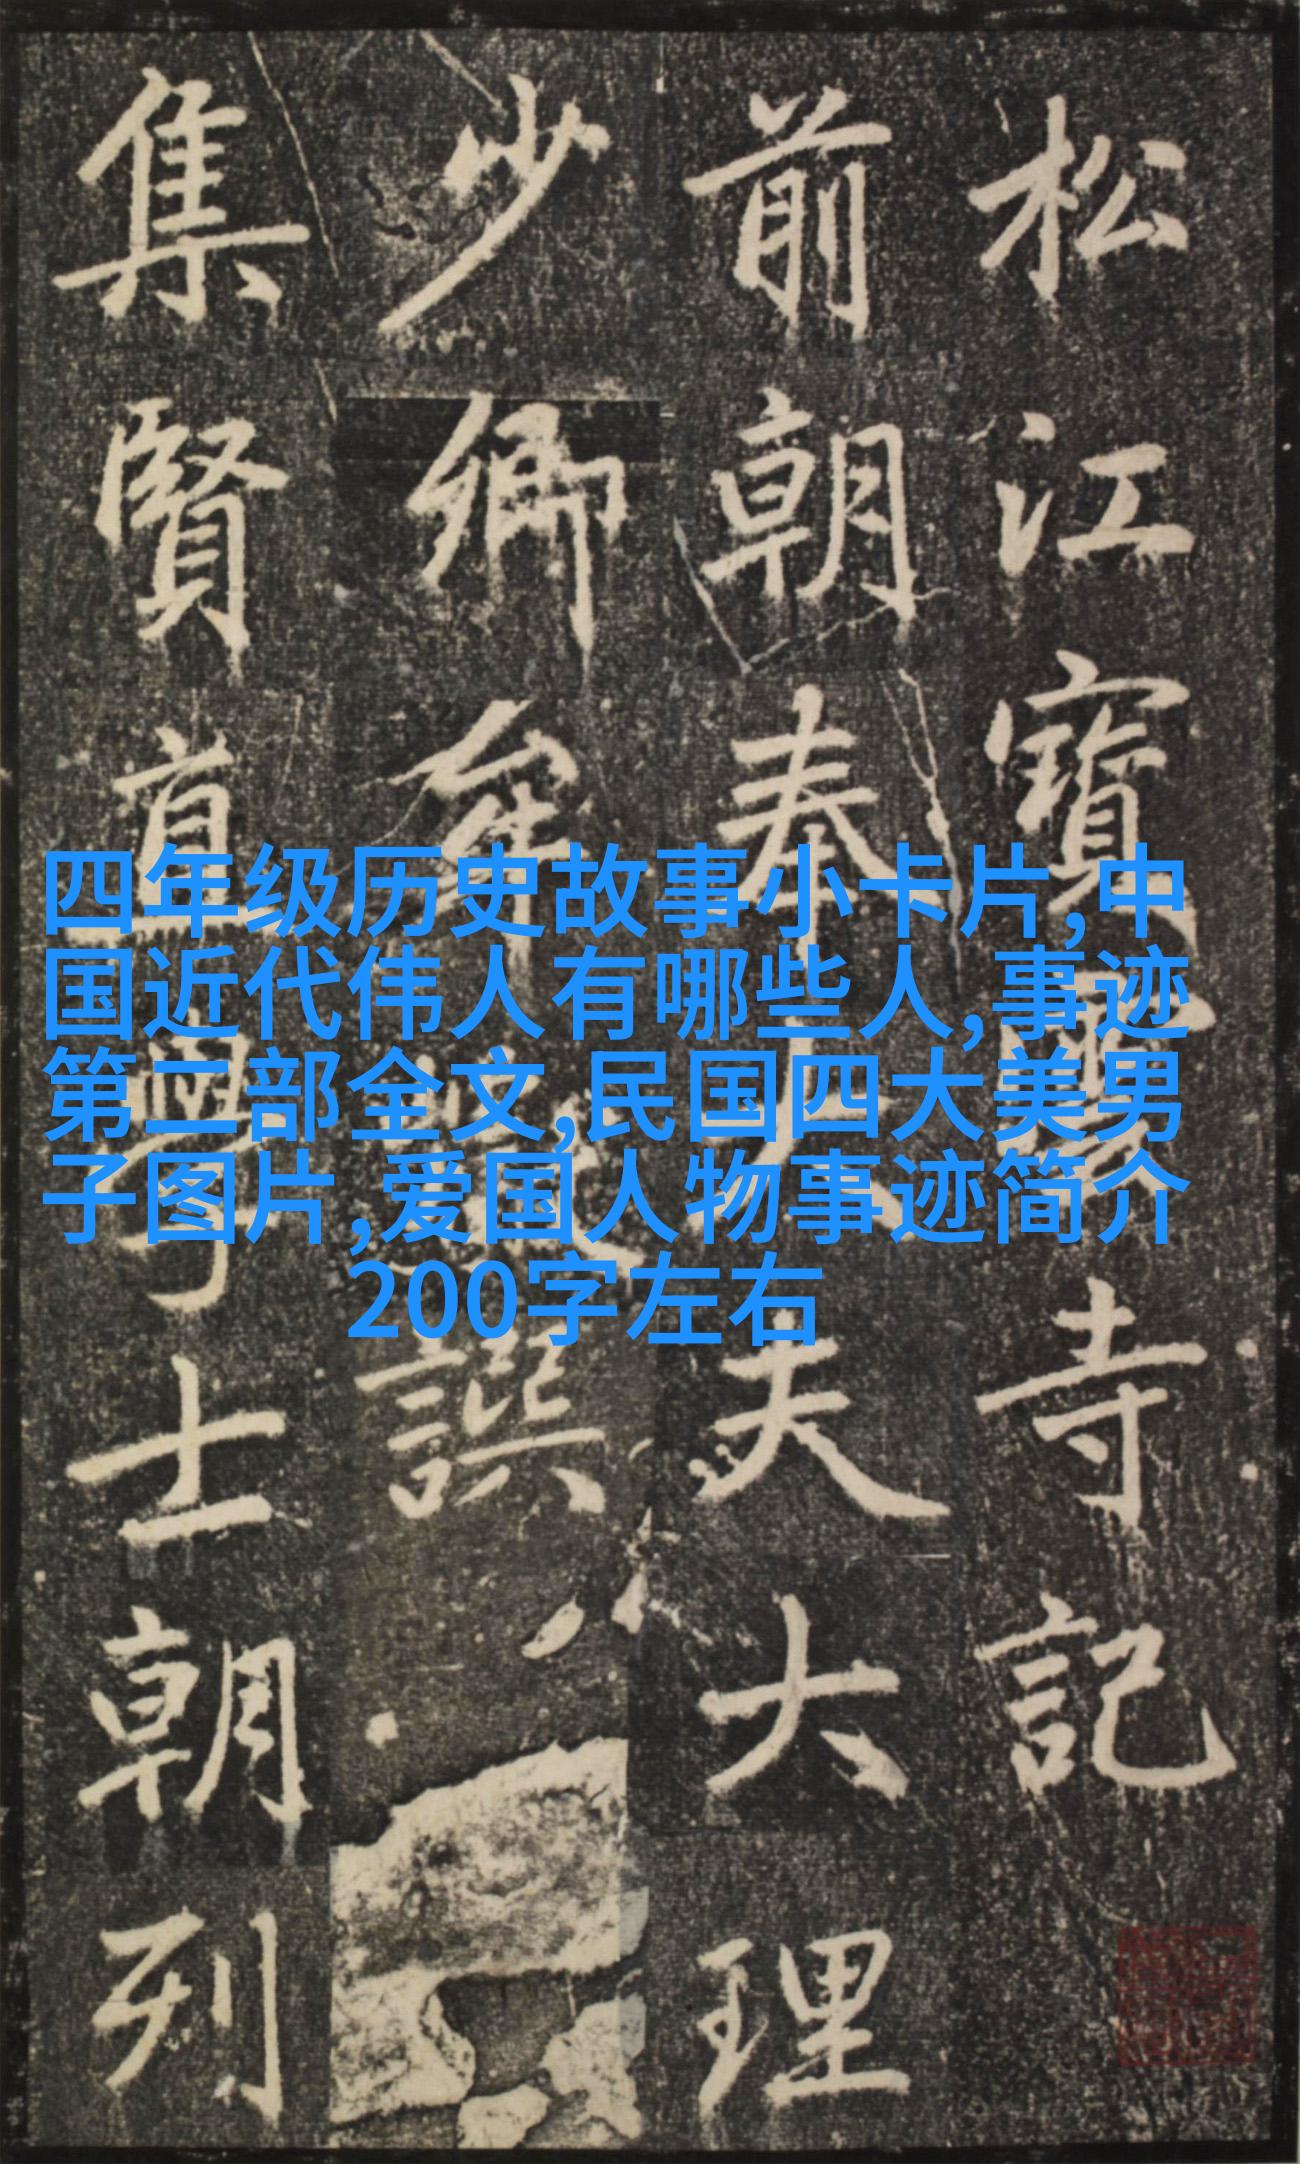 四年级历史故事小卡片,中
国近代伟人有哪些人,事迹
第二部全文,民国四大美男
子图片,爱国人物事迹简介
200字左右
松江寳寺記
前朝奉大夫大理
少卿牟巘譔
集賢直學士朝列